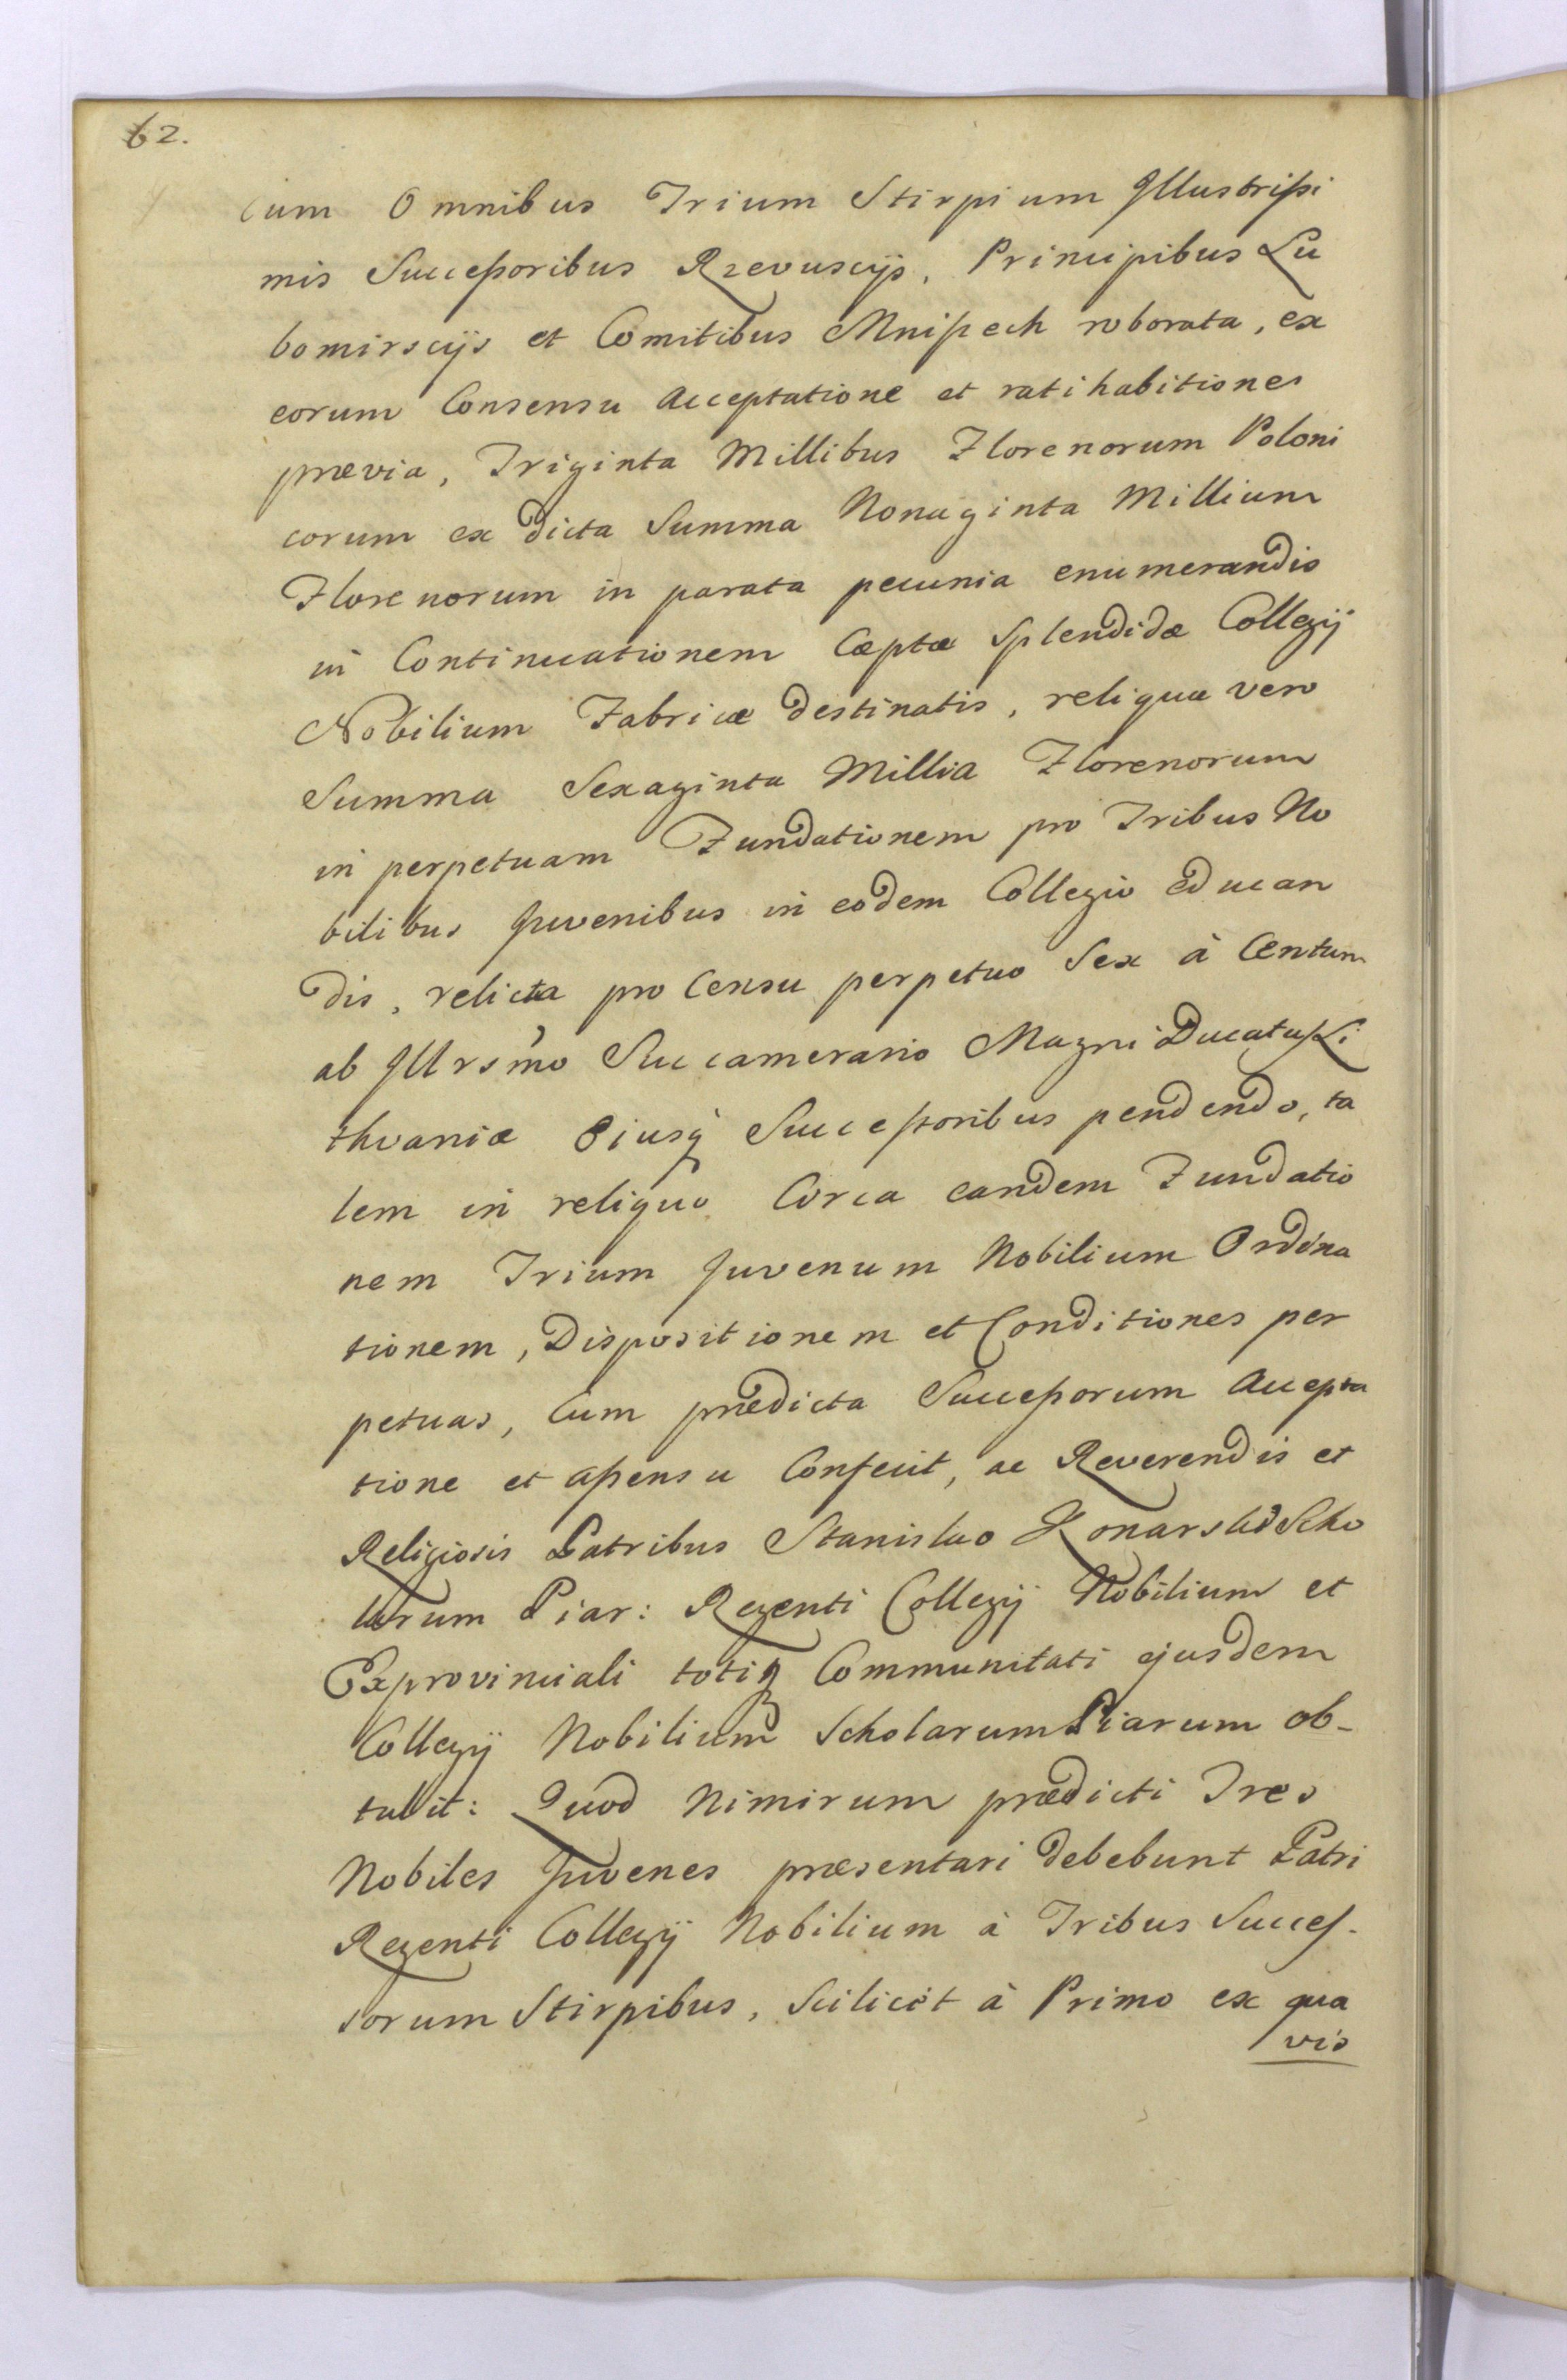 62.
cum Omnibus Trium Stirpium Illustrißi
mis Succeßoribus Rzevuscijs, Principibus Lu
bomirscijs et Comitibus Mnißech roborata, ex
eorum Consensu Acceptatione et ratihabitione
prævia, Triginta Millibus Florenorum Poloni
corum ex dicta Summa Nonaginta Millium
Florenorum in parata pecunia enumerandis
in Continuationem Cæptæ Splendidæ Collegij
Nobilium Fabricæ destinatis, reliqua vero
Summa Sexaginta Millia Florenorum
in perpetuam Fundationem pro Tribus No
bilibus Juvenibus in eodem Collegio educan
dis, relicta pro Censu perpetuo Sex à Centum
ab Illrsm̃o Succamerario Magni Ducatus Li
thvaniæ Eiusq̃ Succeßoribus pendendo, ta
lem in reliquo Circa eandem Fundatio
nem Trium Juvenum Nobilium Ordina
tionem, Dispositionem et Conditiones per
petuas, Cum prædicta Succeßorum Accepta
tione et aßensu Confecit, ac Reverendis et
Religiosis Patribus Stanislao Konarski Scho
larum Piar: Regenti Collegij Nobilium et
Exprovinciali totiq Communitati ejusdem
Collegij Nobilium Scholarum Piarum ob-
tulit: Quod Nimirum prædicti Tres
Nobiles Juvenes præsentari debebunt Patri
Regenti Collegij Nobilium à Tribus Succes-
sorum Stirpibus, Scilicèt à Primo ex qua
vis